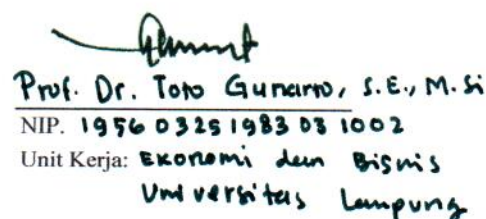 Prof. Dr. Toto Gunarto, S.E., M.Si
NIP. 1956 0325 1983 03 1002
Unit Kerja: Ekonomi dan Bisnis
Universitas Lampung